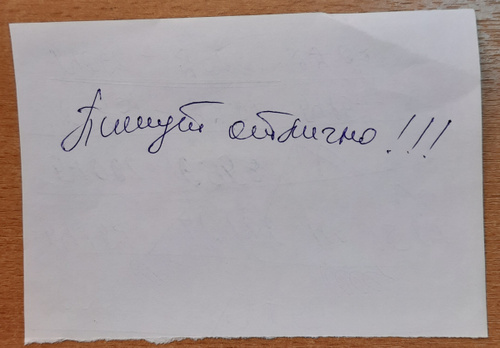 Пишут отлично!!!